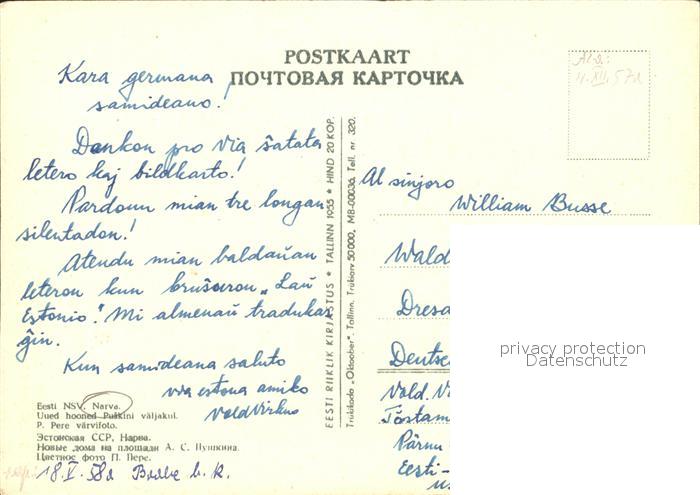 POSTKAART
ПОЧТОВАЯ КАРТОЧКА
Kara germana
samideano!
Dankon pro via ŝatata
letero kaj bildkarto!
Pardonu mian tre longan
silentadon!
Atendu mian baldaŭan
leteron kun broŝuron „Laŭ
Estonio". Mi almenaŭ tradukas
ĝin.
Kun samideana saluto
via estona amiko
Vold Virkus
Eesti NSV. Narva.
Uued hooned Puškini väljakul.
P. Pere värvifoto.
Эстонская ССР, Нарва.
Новые дома на площади А. С. Пушкина.
Цветное фото П. Пере.
18.V.58a
EESTI RIIKLIK KIRJASTUS * TALLINN 1955 * HIND 20 KOP.
Trükikoda „Oktoober". Tallinn. Trükiarv 50 000, MB-00036. Tell. nr. 320.
4.XII.57a
Al sinjoro
William Busse
Wald
Dresd
Deutsc
Vold. V
Tõstam
Pärnu
Eesti-
privacy protection
Datenschutz